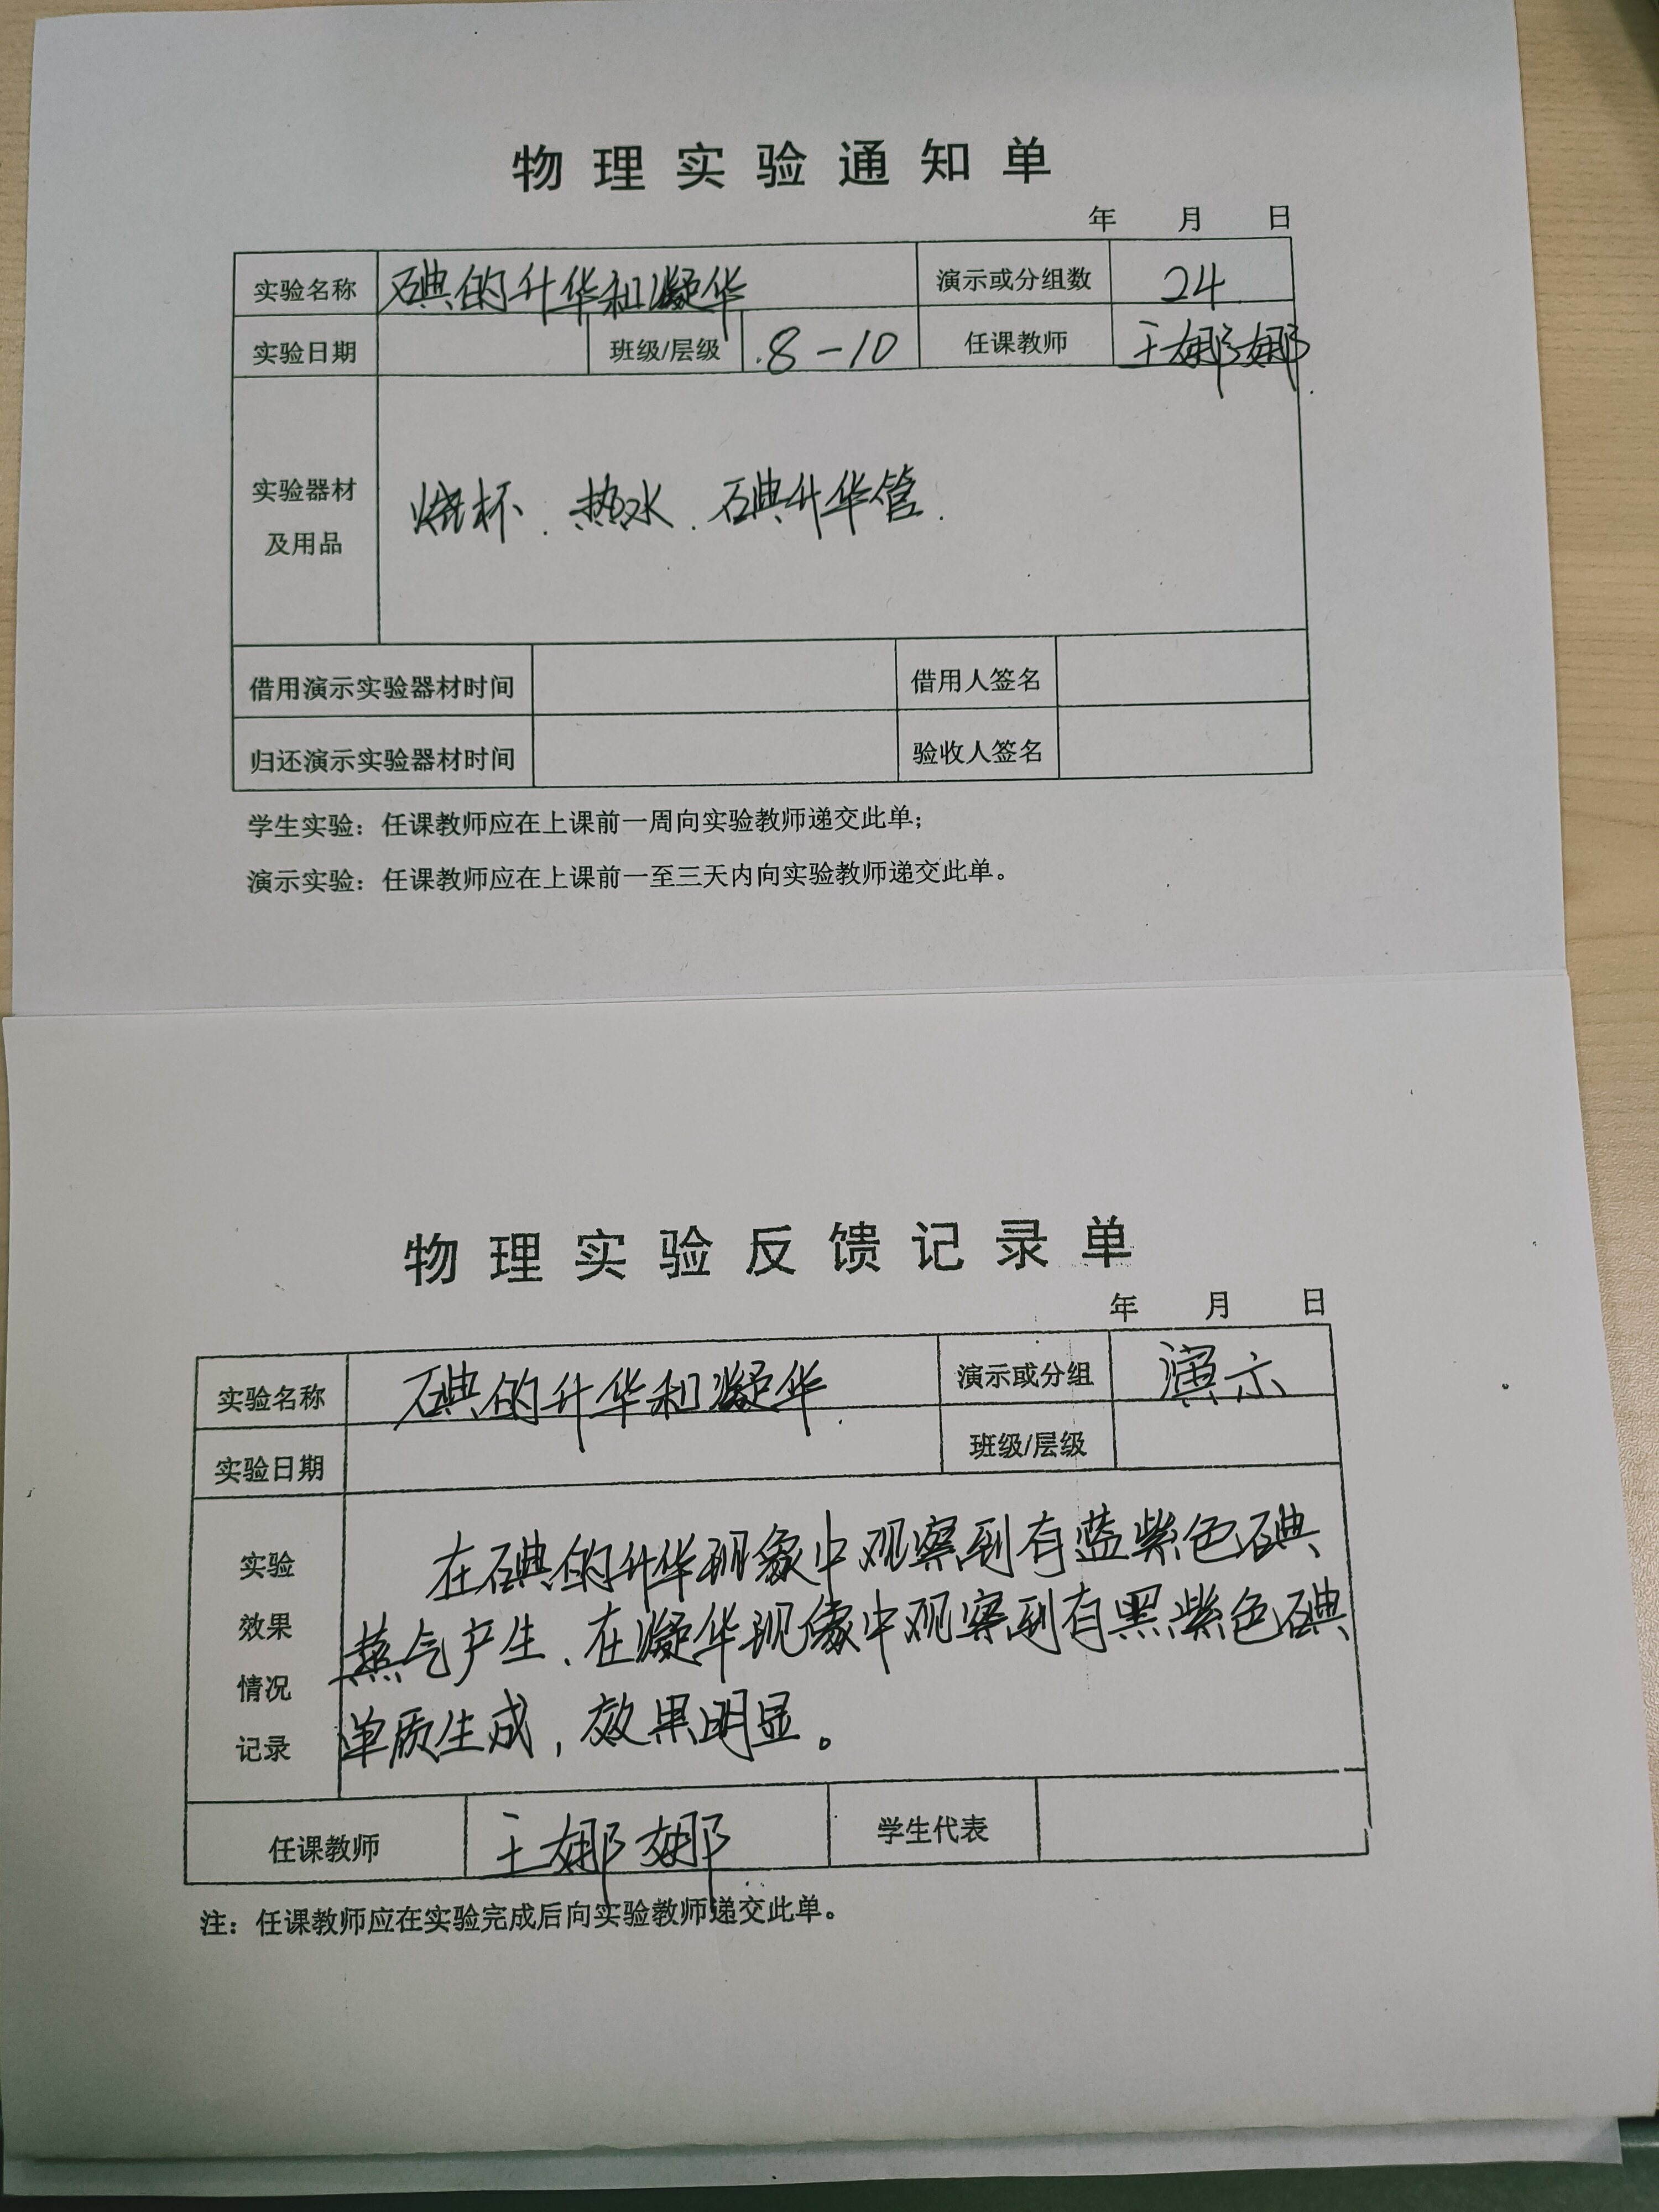 物理实验通知单
年 月 日
实验名称 碘的升华和凝华 演示或分组数 24
实验日期 班级/层级 8-10 任课教师 王娜娜
实验器材
及用品
烧杯、热水、碘升华管.
借用演示实验器材时间 借用人签名
归还演示实验器材时间 验收人签名
学生实验：任课教师应在上课前一周向实验教师递交此单；
演示实验：任课教师应在上课前一至三天内向实验教师递交此单。
物理实验反馈记录单
年 月 日
实验名称 碘的升华和凝华 演示或分组 演示
实验日期 班级/层级
实验
效果
情况
记录
在碘的升华现象中观察到有蓝紫色碘
蒸气产生、在凝华现像中观察到有黑紫色碘
单质生成，效果明显。
任课教师 王娜娜 学生代表
注：任课教师应在实验完成后向实验教师递交此单。